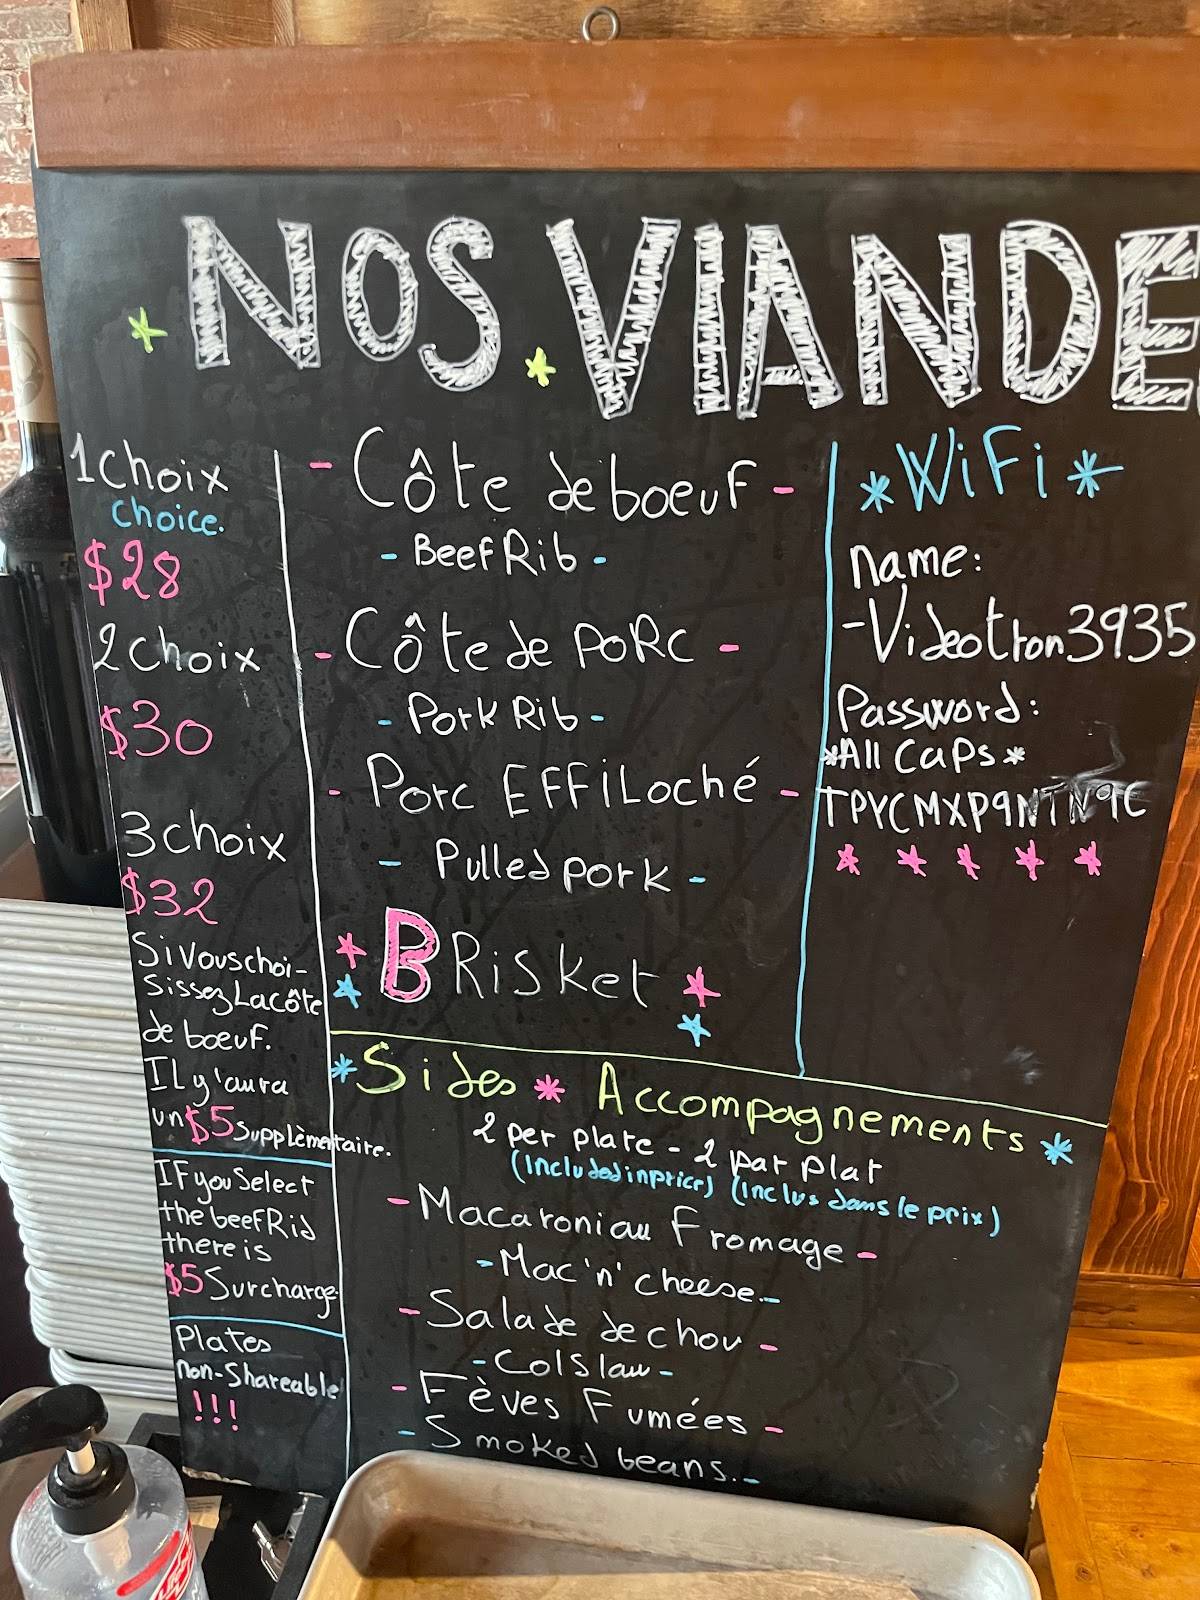 NOS VIANDE
1 choix
choice.
$28
2 choix
$30
3 choix
$32
Si vous choi-
sissez La côte
de boeuf.
IL y'aura
un $5 supplèmentaire.
IF you Select
the beef Rib
there is
$5 Surcharge.
Plates
non-Shareable
!!!
- Côte de boeuf -
- Beef Rib -
- Côte de PORC -
- Pork Rib -
- Porc EFFiLoché -
- Pulled pork -
BRisket
*WiFi*
name:
-Videotron3935
Password:
*All Caps*
*Sides * Accompagnements *
2 per plate - 2 par plat
(included in price) (inclus dans le prix)
- Macaroni au Fromage -
- Mac 'n' cheese. -
- Salade de chou -
- Colslaw -
- Fèves Fumées -
- Smoked beans. -